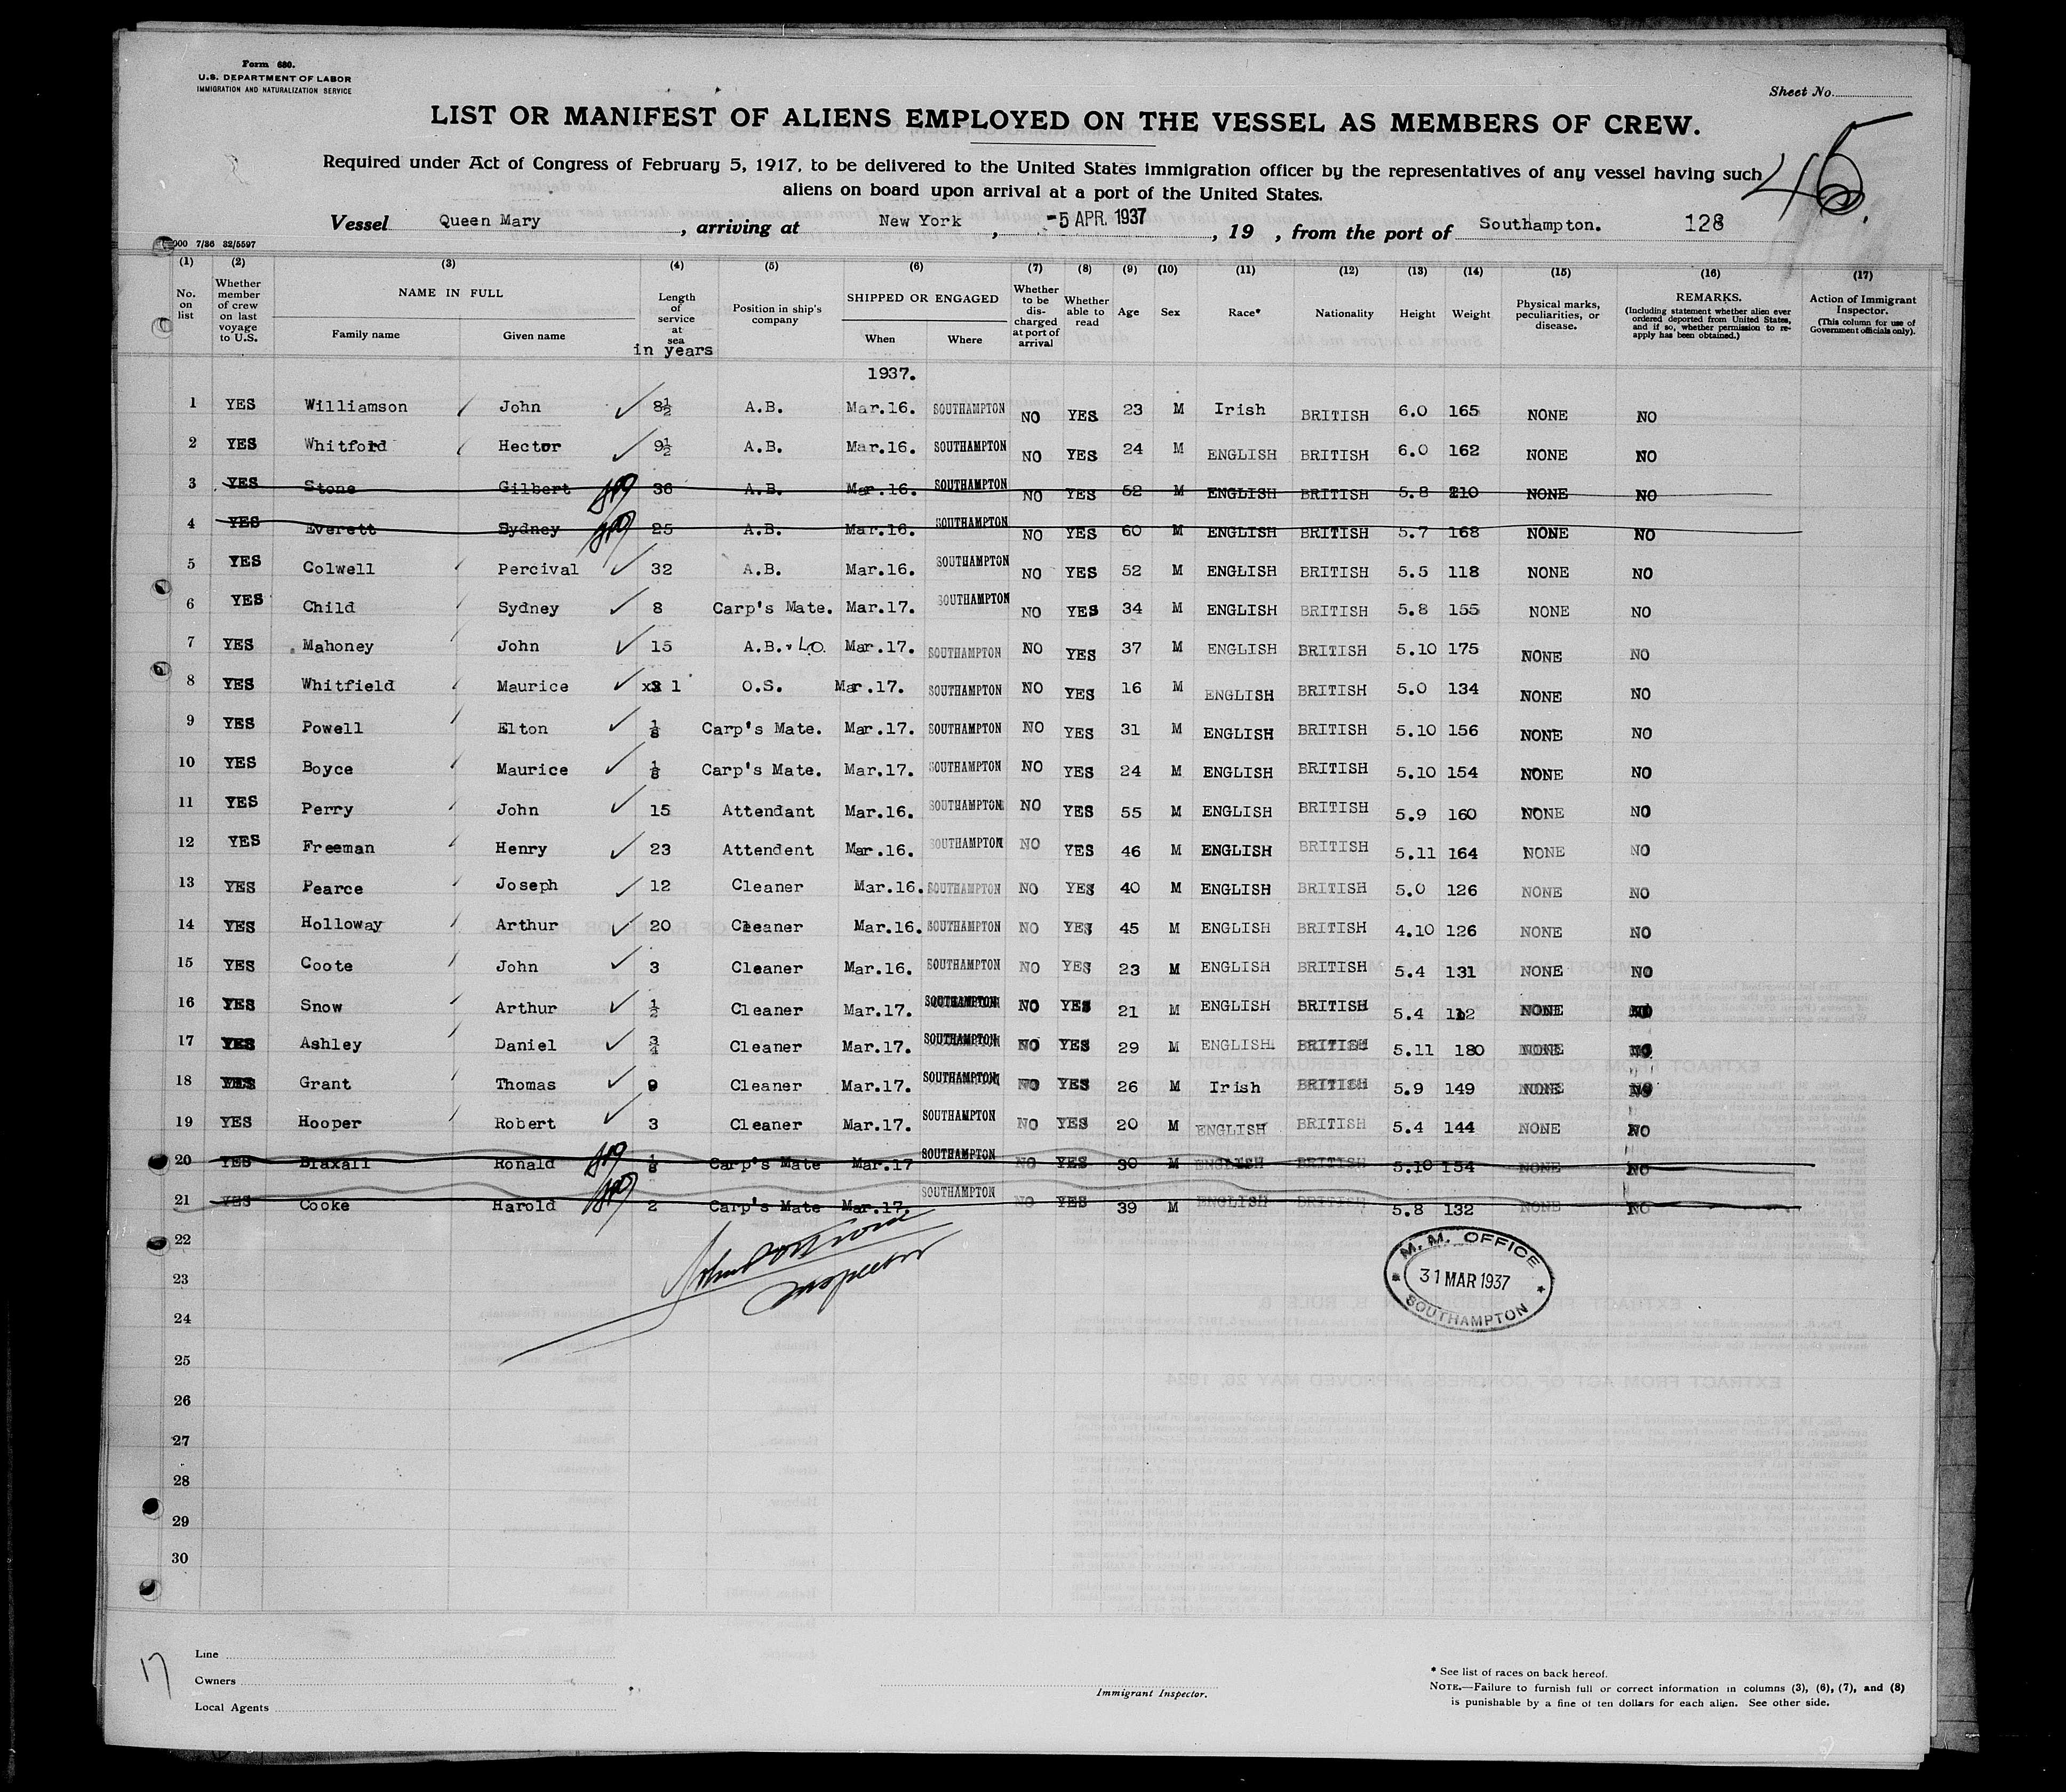 Form 680.
U.S. DEPARTMENT OF LABOR
IMMIGRATION AND NATURALIZATION SERVICE
Sheet No.
LIST OR MANIFEST OF ALIENS EMPLOYED ON THE VESSEL AS MEMBERS OF CREW.
45.
Required under Act of Congress of February 5, 1917, to be delivered to the United States immigration officer by the representatives of any vessel having such
aliens on board upon arrival at a port of the United States.
Vessel Queen Mary, arriving at New York, -5 APR. 1937, 19 , from the port of Southampton. 128
000 7/36 32/5597
(1) (2) (3) (4) (5) (6) (7) (8) (9) (10) (11) (12) (13) (14) (15) (16) (17)
No. on list Whether member of crew on last voyage to U.S. NAME IN FULL Family name Given name Length of service at sea in years Position in ship's company SHIPPED OR ENGAGED When Where Whether to be discharged at port of arrival Whether able to read Age Sex Race* Nationality Height Weight Physical marks, peculiarities, or disease. REMARKS. (Including statement whether alien ever ordered deported from United States, and if so, whether permission to reapply has been obtained.) Action of Immigrant Inspector. (This column for use of Government officials only).
1937.
1 YES Williamson John 8½ A.B. Mar.16. SOUTHAMPTON NO YES 23 M Irish BRITISH 6.0 165 NONE NO
2 YES Whitford Hector 9½ A.B. Mar.16. SOUTHAMPTON NO YES 24 M ENGLISH BRITISH 6.0 162 NONE NO
3 YES Stone Gilbert 36 A.B. Mar.16. SOUTHAMPTON NO YES 52 M ENGLISH BRITISH 5.8 210 NONE NO
4 YES Everett Sydney 25 A.B. Mar.16. SOUTHAMPTON NO YES 60 M ENGLISH BRITISH 5.7 168 NONE NO
5 YES Colwell Percival 32 A.B. Mar.16. SOUTHAMPTON NO YES 52 M ENGLISH BRITISH 5.5 118 NONE NO
6 YES Child Sydney 8 Carp's Mate. Mar.17. SOUTHAMPTON NO YES 34 M ENGLISH BRITISH 5.8 155 NONE NO
7 YES Mahoney John 15 A.B. L.O. Mar.17. SOUTHAMPTON NO YES 37 M ENGLISH BRITISH 5.10 175 NONE NO
8 YES Whitfield Maurice 1 O.S. Mar.17. SOUTHAMPTON NO YES 16 M ENGLISH BRITISH 5.0 134 NONE NO
9 YES Powell Elton ⅛ Carp's Mate. Mar.17. SOUTHAMPTON NO YES 31 M ENGLISH BRITISH 5.10 156 NONE NO
10 YES Boyce Maurice ⅛ Carp's Mate. Mar.17. SOUTHAMPTON NO YES 24 M ENGLISH BRITISH 5.10 154 NONE NO
11 YES Perry John 15 Attendant Mar.16. SOUTHAMPTON NO YES 55 M ENGLISH BRITISH 5.9 160 NONE NO
12 YES Freeman Henry 23 Attendent Mar.16. SOUTHAMPTON NO YES 46 M ENGLISH BRITISH 5.11 164 NONE NO
13 YES Pearce Joseph 12 Cleaner Mar.16. SOUTHAMPTON NO YES 40 M ENGLISH BRITISH 5.0 126 NONE NO
14 YES Holloway Arthur 20 Cleaner Mar.16. SOUTHAMPTON NO YES 45 M ENGLISH BRITISH 4.10 126 NONE NO
15 YES Coote John 3 Cleaner Mar.16. SOUTHAMPTON NO YES 23 M ENGLISH BRITISH 5.4 131 NONE NO
16 YES Snow Arthur ½ Cleaner Mar.17. SOUTHAMPTON NO YES 21 M ENGLISH BRITISH 5.4 112 NONE NO
17 YES Ashley Daniel ¾ Cleaner Mar.17. SOUTHAMPTON NO YES 29 M ENGLISH BRITISH 5.11 180 NONE NO
18 YES Grant Thomas 9 Cleaner Mar.17. SOUTHAMPTON NO YES 26 M Irish BRITISH 5.9 149 NONE NO
19 YES Hooper Robert 3 Cleaner Mar.17. SOUTHAMPTON NO YES 20 M ENGLISH BRITISH 5.4 144 NONE NO
20 YES Blaxall Ronald ⅛ Carp's Mate Mar.17 SOUTHAMPTON NO YES 30 M ENGLISH BRITISH 5.10 154 NONE NO
21 YES Cooke Harold 2 Carp's Mate Mar.17. SOUTHAMPTON NO YES 39 M ENGLISH BRITISH 5.8 132 NONE NO
22
Inspector
M.M. OFFICE
31 MAR 1937
SOUTHAMPTON
23
24
25
26
27
28
29
30
17
Line
Owners
Local Agents
Immigrant Inspector.
* See list of races on back hereof.
NOTE.—Failure to furnish full or correct information in columns (3), (6), (7), and (8)
is punishable by a fine of ten dollars for each alien. See other side.